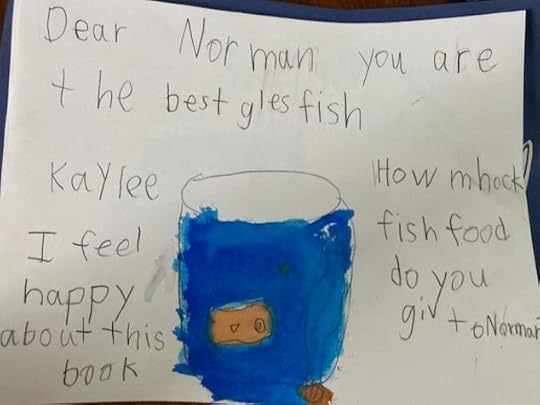 Dear Norman you are
the best gles fish
Kaylee
I feel
happy
about this
book
How mhock
fish food
do you
giv to Norman